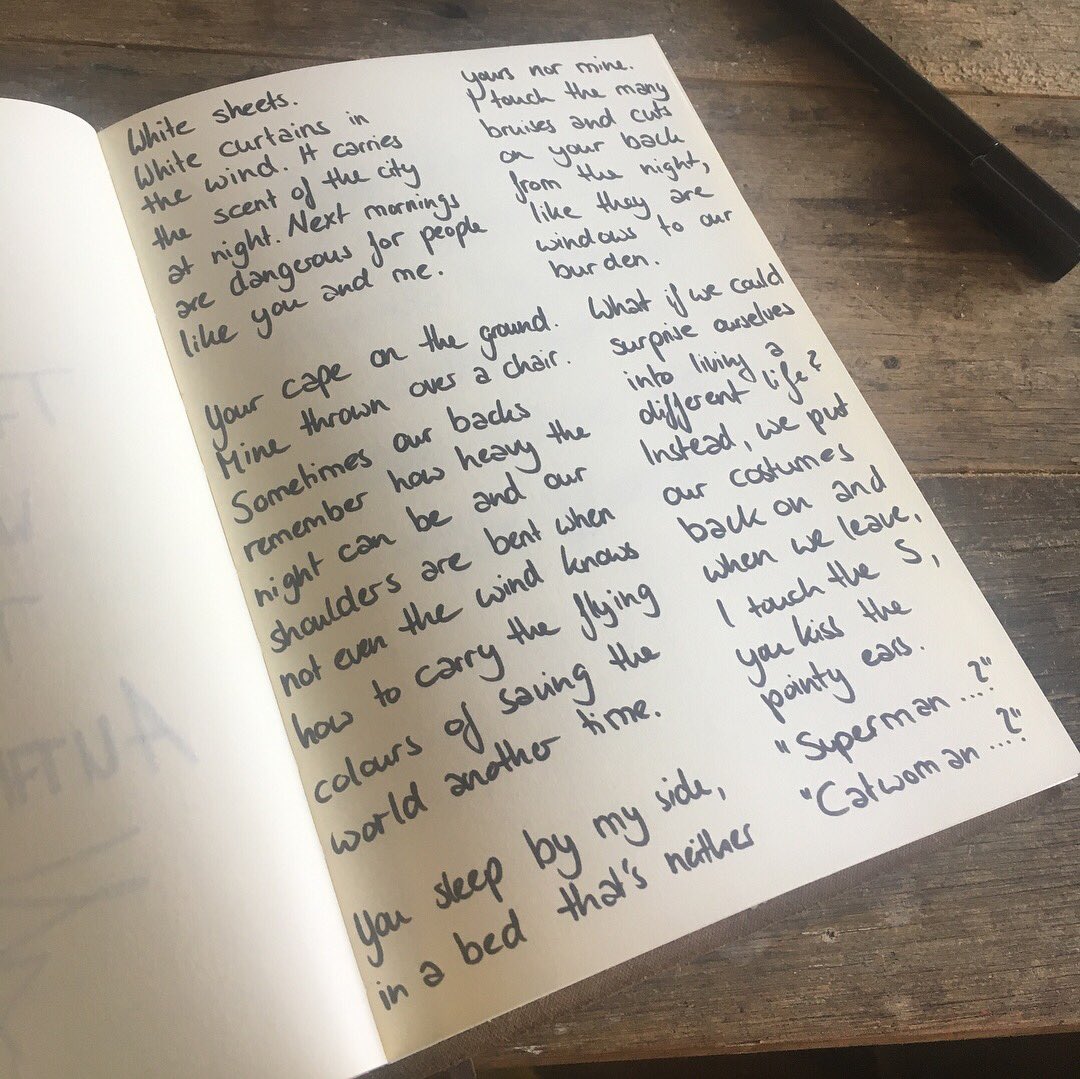 White sheets.
White curtains in
the wind. It carries
the scent of the city
at night. Next mornings
are dangerous for people
like you and me.
Your cape on the ground.
Mine thrown over a chair.
Sometimes our backs
remember how heavy the
night can be and our
shoulders are bent when
not even the wind knows
how to carry the flying
colours of saving the
world another time.
You sleep by my side,
in a bed that's neither
yours nor mine.
I touch the many
bruises and cuts
on your back
from the night,
like they are
windows to our
burden.
What if we could
surprise ourselves
into living a
different life?
Instead, we put
our costumes
back on and
when we leave,
I touch the S,
you kiss the
pointy ears.
"Superman ...?"
"Catwoman ...?"